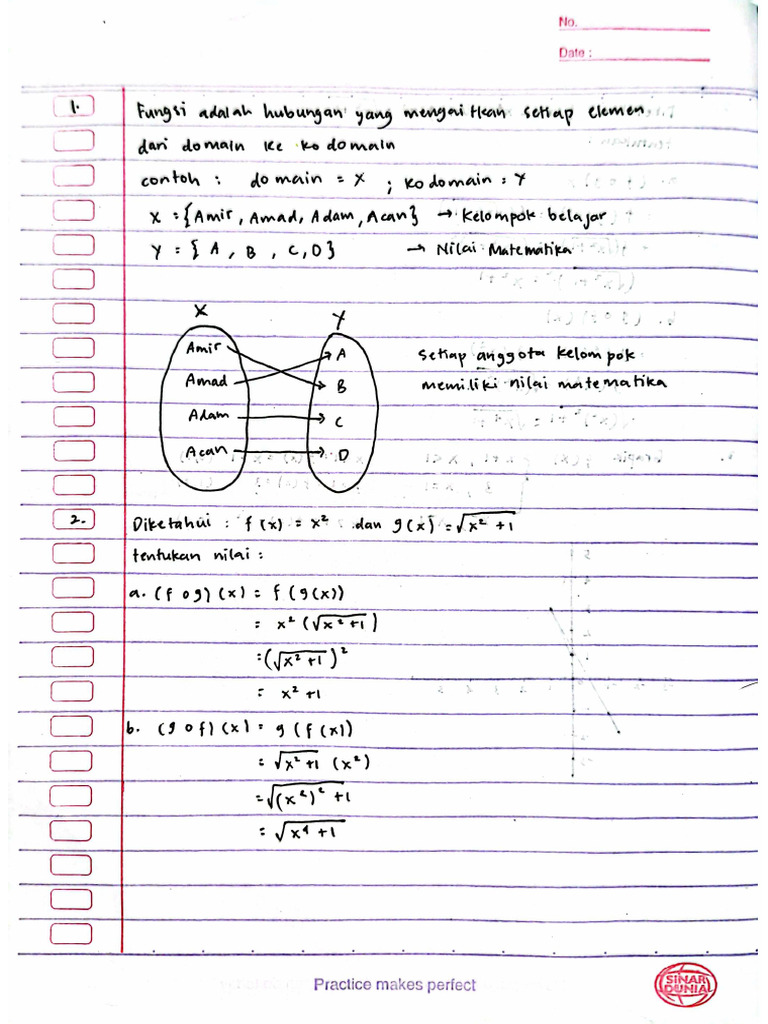 No.
Date :
1. Fungsi adalah hubungan yang mengaitkan setiap elemen
dari domain ke kodomain
contoh : domain = X ; kodomain : Y
X = {Amir, Amad, Adam, Acan} → Kelompok belajar
Y = { A , B , C, D } → Nilai Matematika
X Y
Amir A
Amad B
Adam C
Acan D
setiap anggota kelompok
memiliki nilai matematika
2. Diketahui : f(x) = x² dan g(x) = √(x² + 1)
tentukan nilai :
a. (f o g) (x) = f(g(x))
= x² (√(x² + 1))
= (√(x² + 1))²
= x² + 1
b. (g o f) (x) = g(f(x))
= √(x² + 1) (x²)
= √((x²)² + 1)
= √(x⁴ + 1)
Practice makes perfect
SINAR
DUNIA